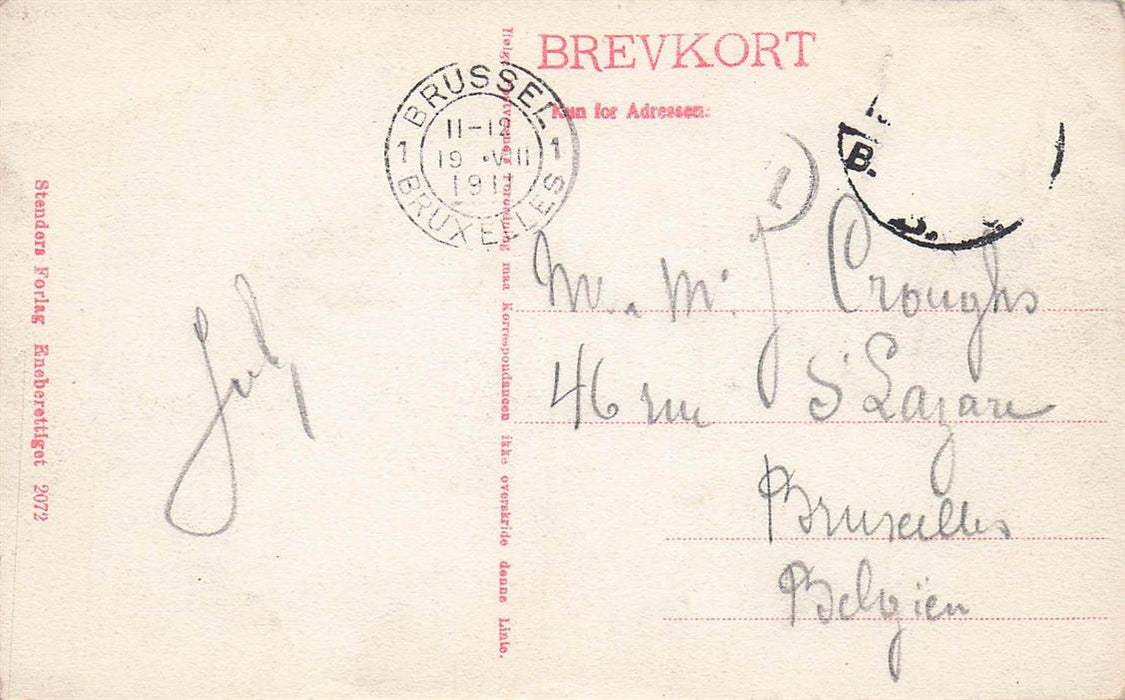 BREVKORT
Kun for Adressen:
BRUSSEL
1 11-12 1
19 ·VII
191
BRUXELLES
B.
B.
1
M. M. J. Croughs
46 rue St Lazare
Bruxelles
Belgien
maa Korrespondancen ikke overskride denne Linie.
Stenders Forlag Eneberettiget 2072